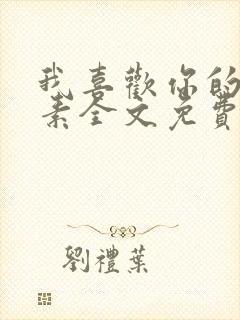 我喜歡你的
素全文免費
劉禮葉